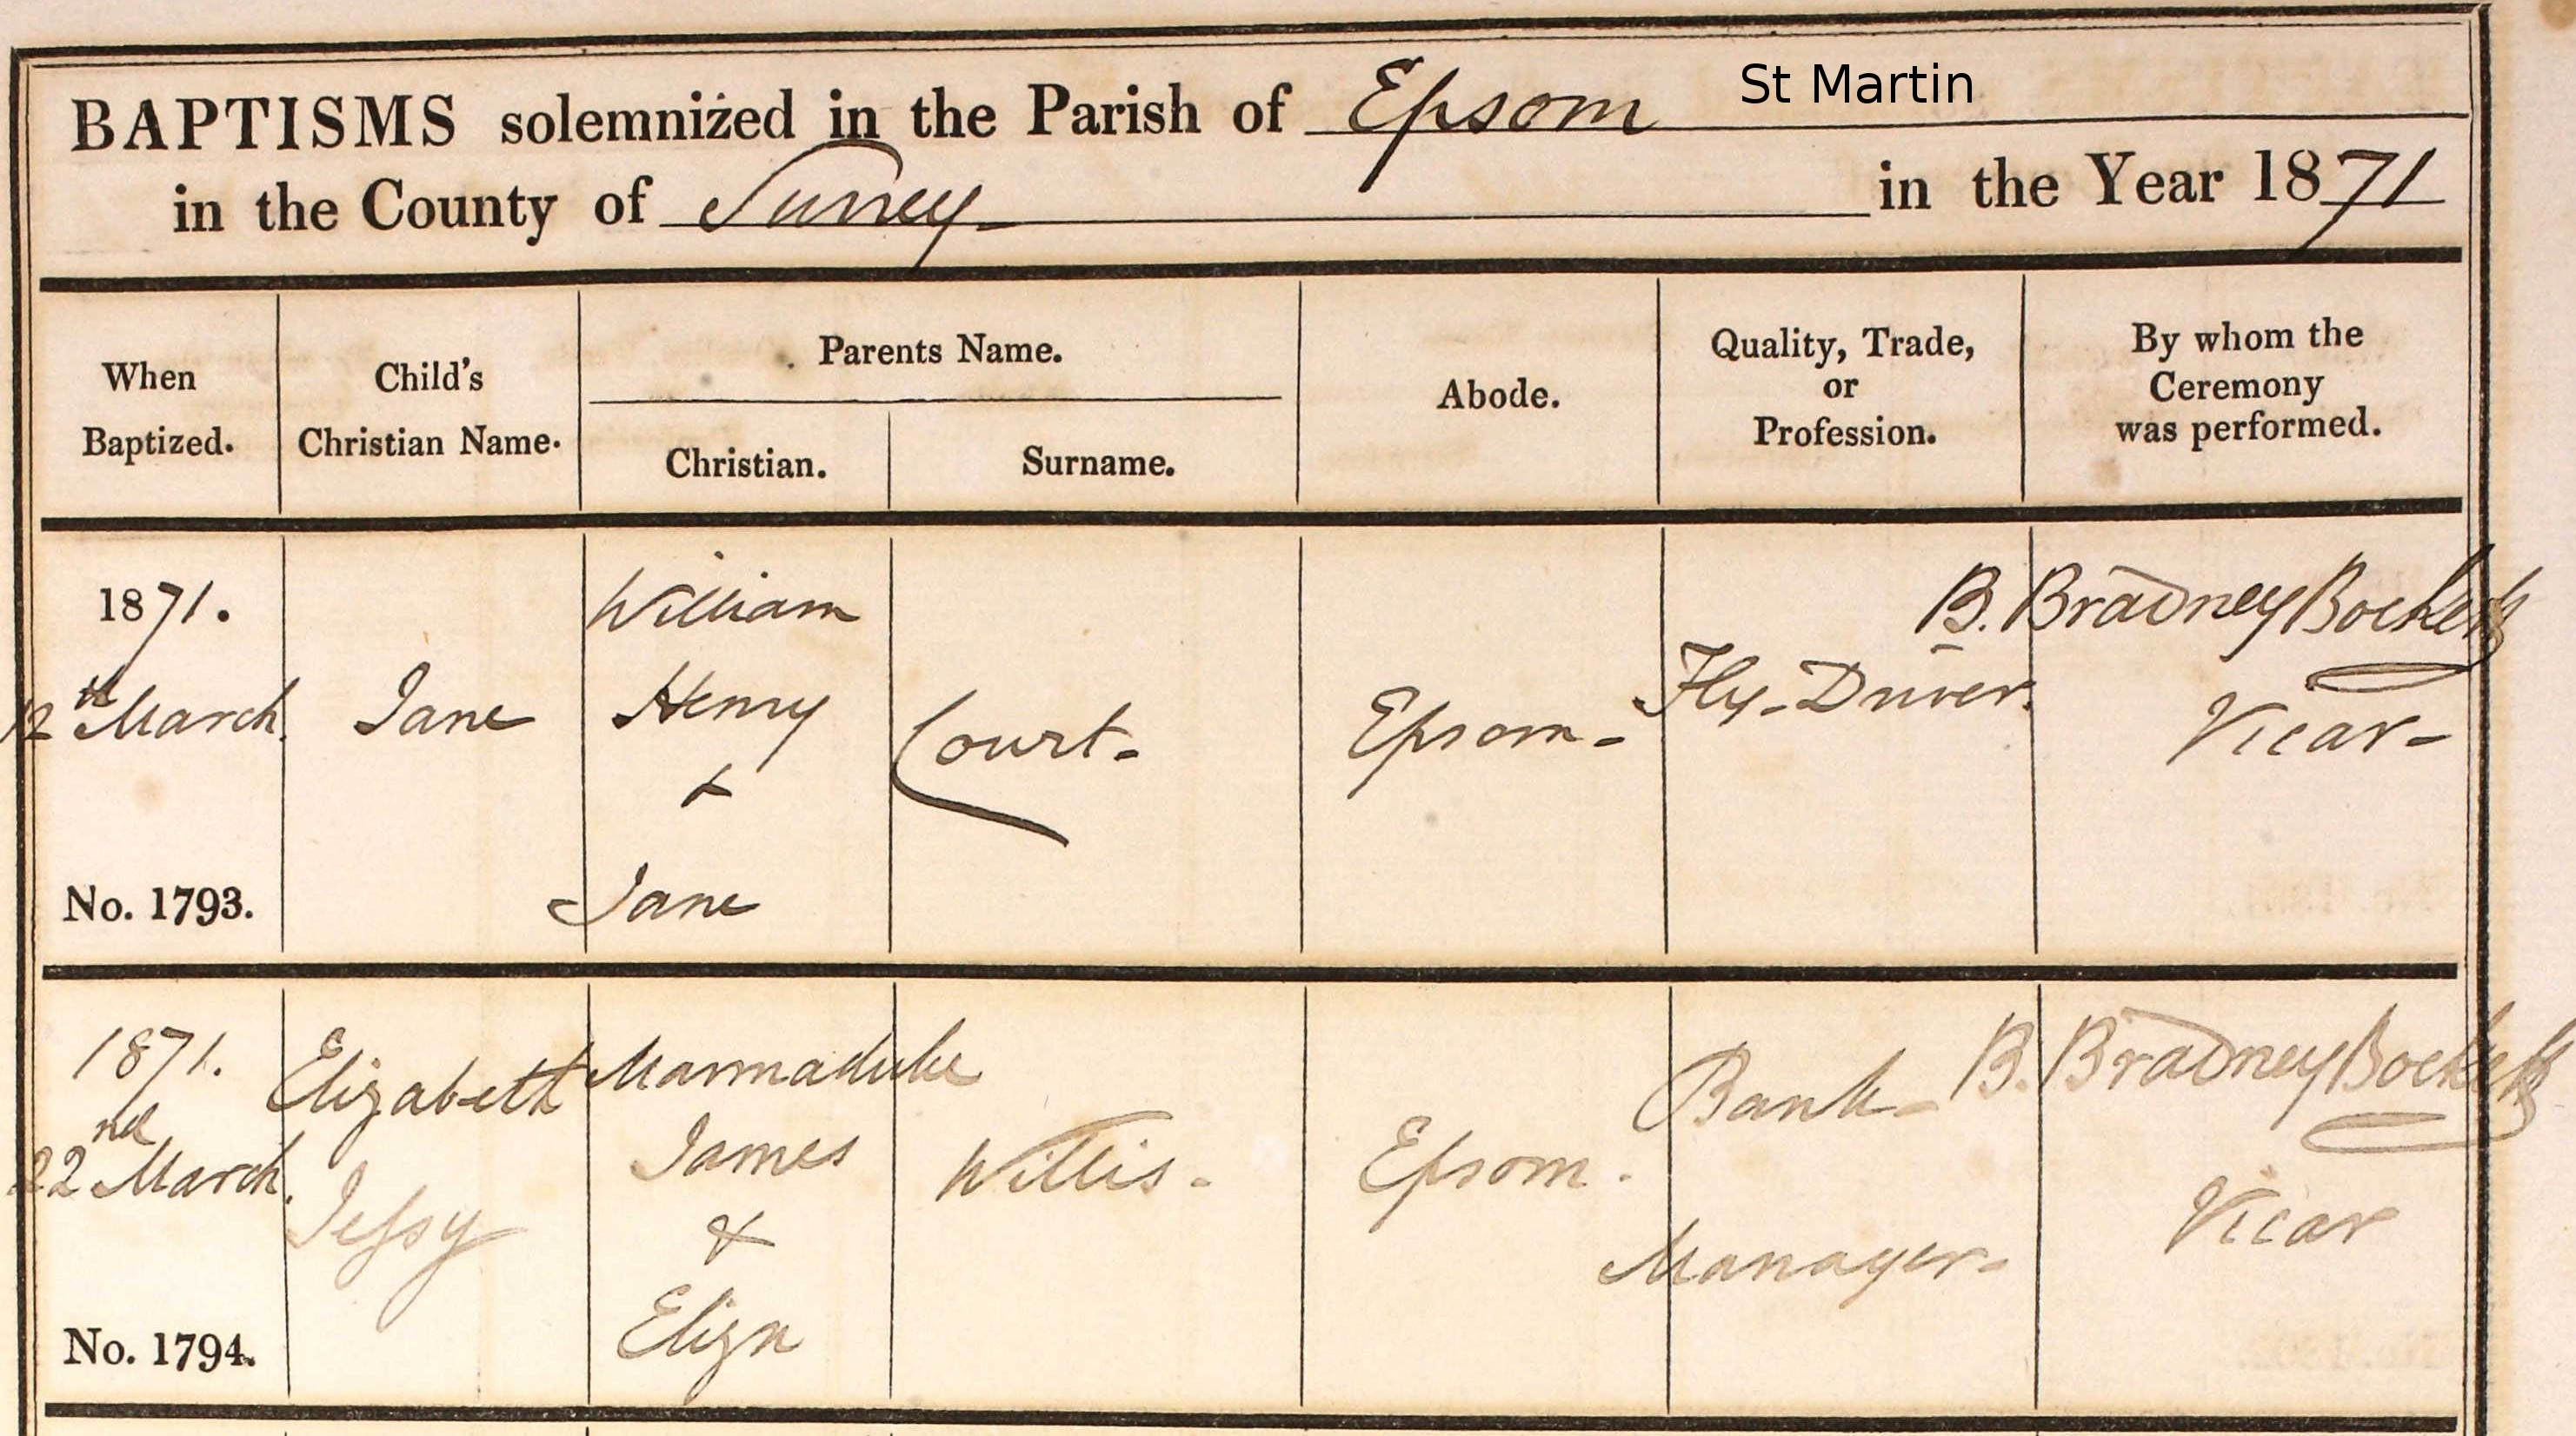 BAPTISMS solemnized in the Parish of Epsom St Martin
in the County of Surrey in the Year 1871
When
Baptized.
Child's
Christian Name.
Parents Name.
Christian.
Surname.
Abode.
Quality, Trade,
or
Profession.
By whom the
Ceremony
was performed.
1871.
12th March.
No. 1793.
Jane
William
Henry
&
Jane
Court.
Epsom.
Fly-Driver.
B. Bradney Bockett
Vicar
1871.
22nd March.
No. 1794.
Elizabeth
Jessy
Marmaduke
James
&
Eliza
Willis.
Epsom.
Bank
Manager
B. Bradney Bockett
Vicar